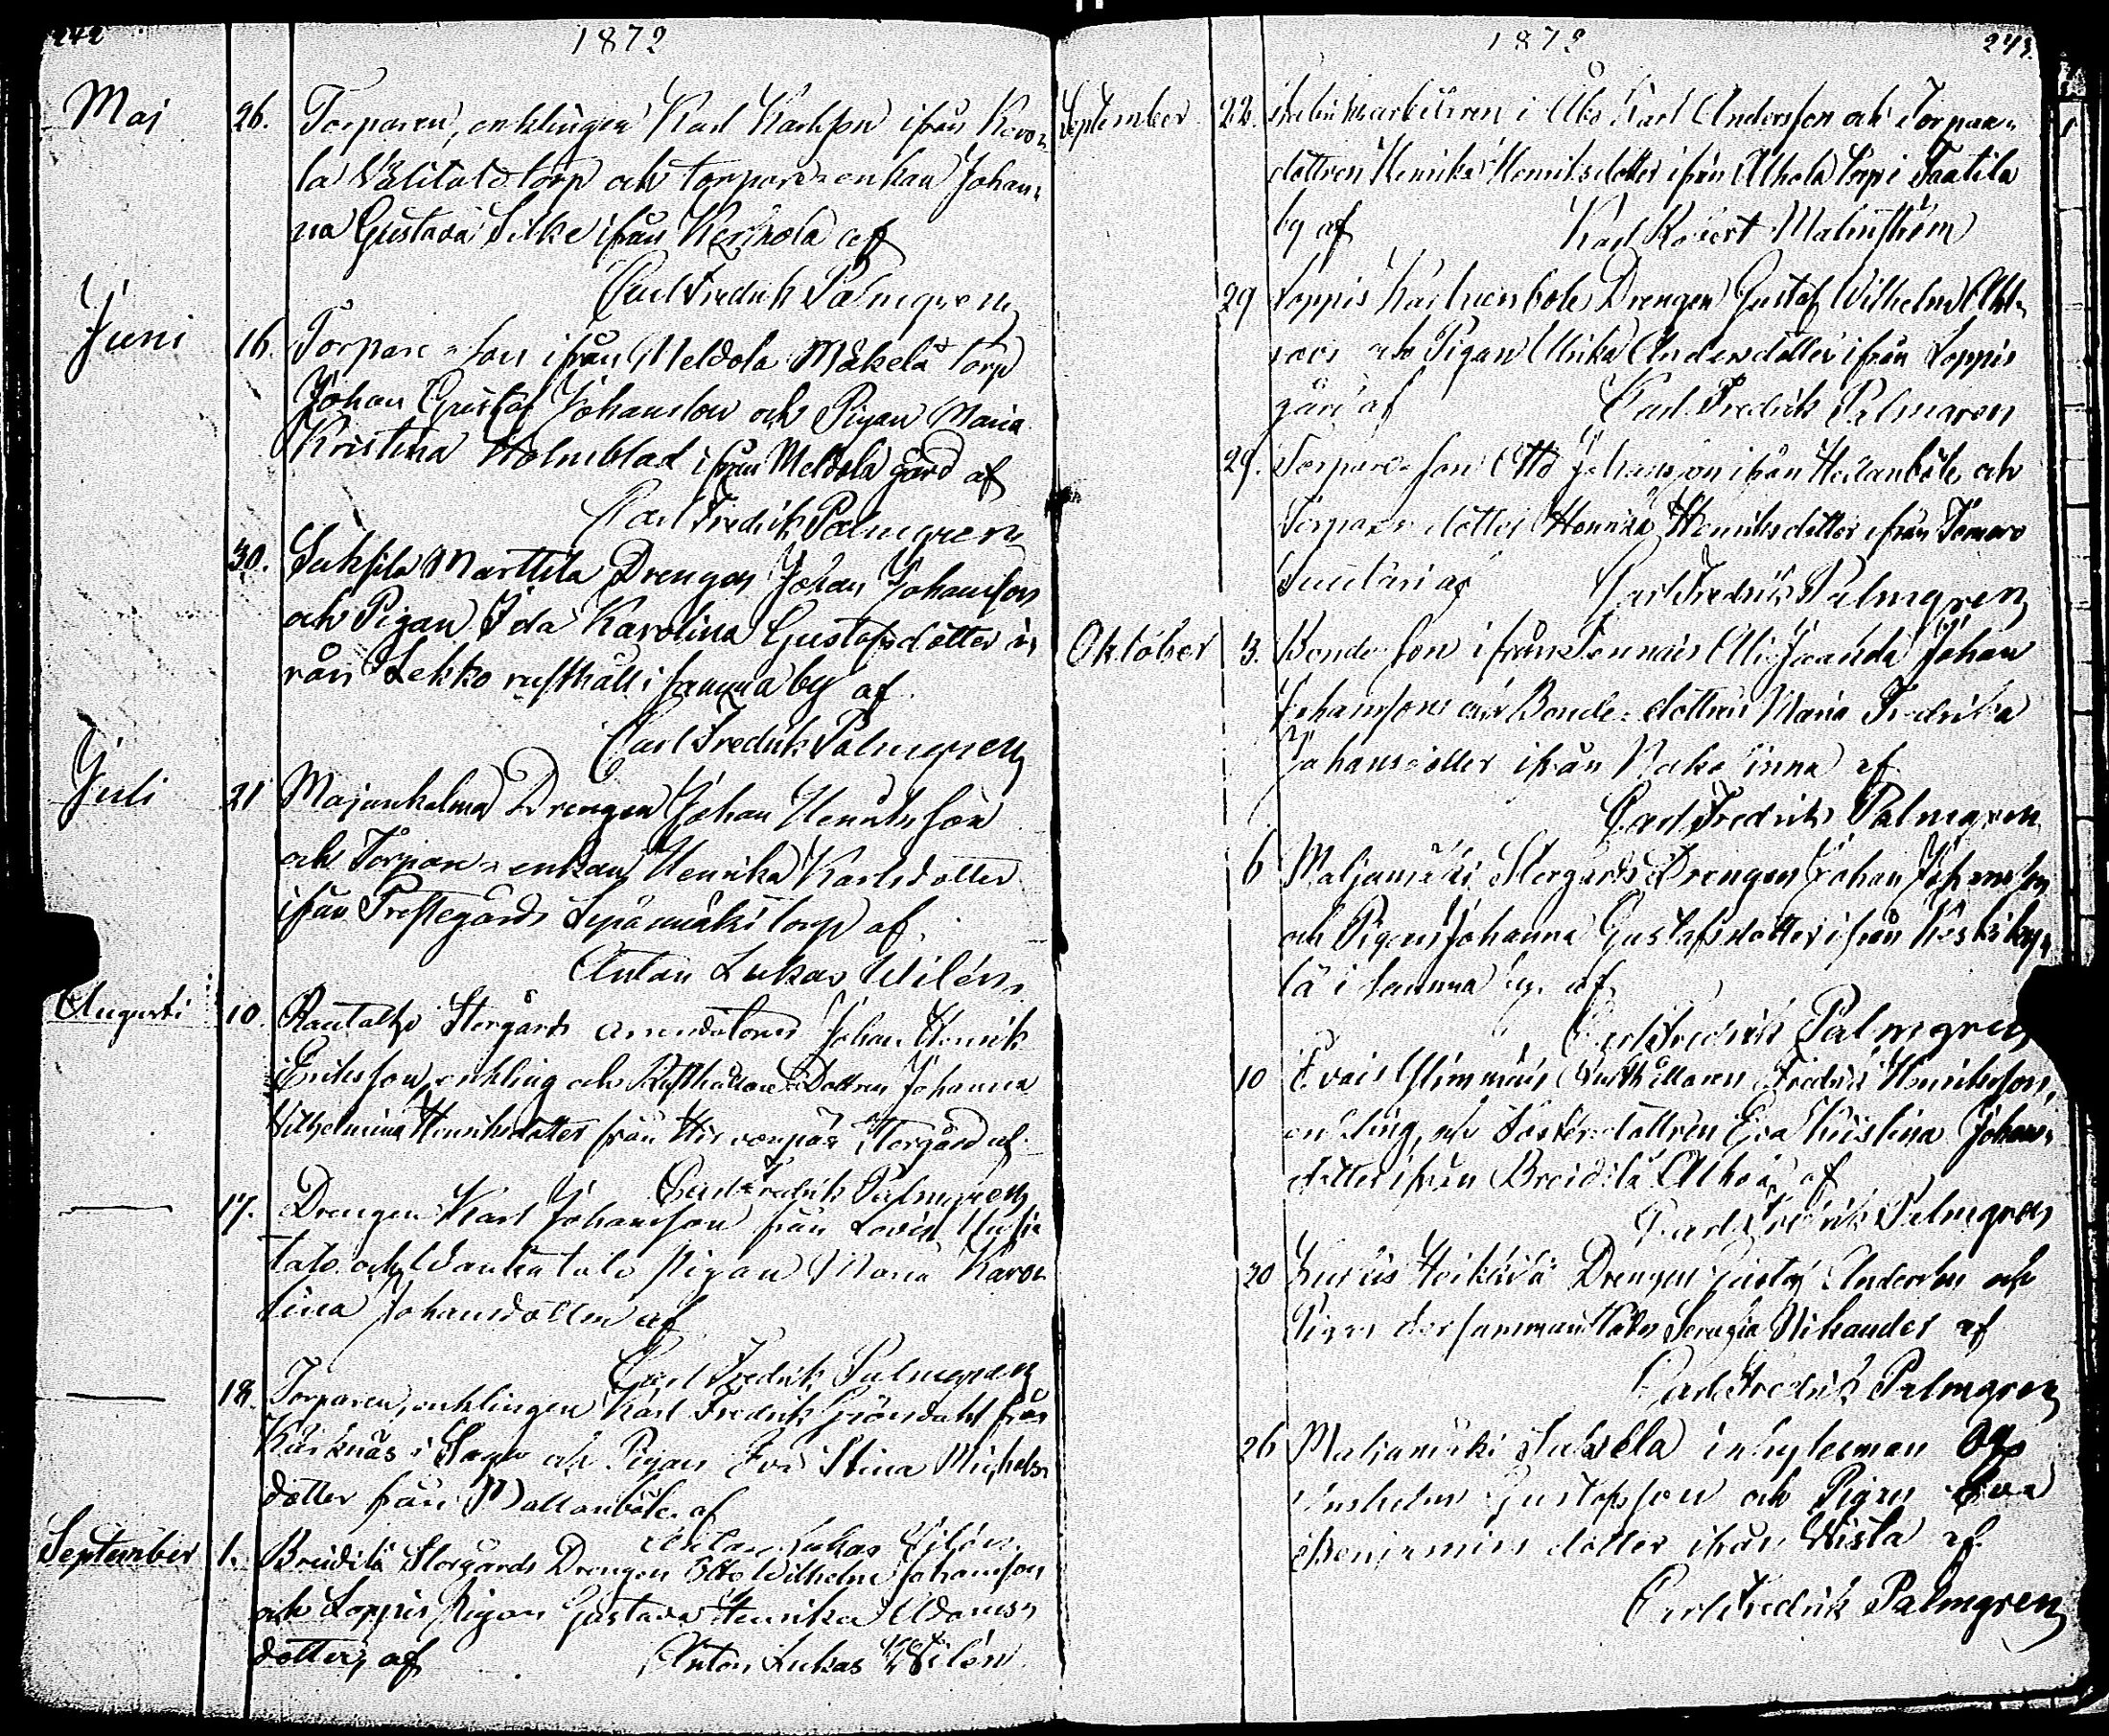 242
1872
Maj 26. Torparen, enklingen Karl Karlsson ifrån Kavo-
la Välitalo torp och torpare-enkan Johan-
na Gustava Silke ifrån Kerkola af
Carl Fredrik Palmgren
Juni 16. Torpare-son ifrån Meldola Mäkelä torp
Johan Gustaf Johansson och Pigan Maria
Kristina Holmblad ifrån Meldola gård af
Carl Fredrik Palmgren
30. Suksela Marttila Drengen Johan Johansson
och Pigan Ida Karolina Gustafsdotter if-
rån Lekko rusthåll i samma by af
Carl Fredrik Palmgren
Juli 21 Majankalma Drengen Johan Henriksson
och Torpare-enkan Henrika Karlsdotter
ifrån Prestegårds Sepänmäki torp af
Anton Lukas Wilén
Augusti 10. Storgårds arrendatorn Johan Henrik
Eriksson, enkling och Rusthållare Dottren Johanna
Vilhelmina Henriksdotter från Hirvonpää Storgård af
Carl Fredrik Palmgren
— 17. Drengen Karl Johansson från
talo och pigan Maria Karo-
lina Johansdotter af
Carl Fredrik Palmgren
— 18. Torparen, enklingen Karl Fredrik Gröndahl från
Kärknäs i Sagu och Pigan Eva Stina Michels-
dotter från Dallanböle af
Anton Lukas Wilén
September 1. Breidilä Storgårds Drengen Otto Wilhelm Johansson
och Loppis Pigan Gustava Henrika Adams-
dotter, af Anton Lukas Wilén
1872
243.
September 22. i Åbo Karl Andersson och Torpare-
dottren Henrika Henriksdotter ifrån Alhola torp i Taatila
by af Karl Robert Malmström
29 Loppis Drengen Gustaf Wilhelm
och Pigan Ulrika Andersdotter ifrån Loppis
gård af Carl Fredrik Palmgren
29. Torpare-son Otto Johansson ifrån och
Torpare-dotter Henrika Henriksdotter ifrån
af Carl Fredrik Palmgren
Oktober 3. Bonde-son ifrån Johan
Johansson och Bonde-dottren Maria Fredrika
Johansdotter ifrån af
Carl Fredrik Palmgren
6 Maljamäki Storgårds Drengen Johan Johansson
och Pigan Johanna Gustafsdotter ifrån Keskiky-
lä i samma by af
Carl Fredrik Palmgren
10 Rusthållaren Fredrik Henriksson,
enkling, och dottren Eva Kristina Johans-
dotter ifrån Breidilä af
Carl Fredrik Palmgren
20 Heikkilä Drengen Gustaf Andersson och
Pigan dersammastädes Serafia Nikander af
Carl Fredrik Palmgren
26 Maljamäki inhysesman
Gustafsson och Pigan Eva
Benjaminsdotter ifrån Wista af
Carl Fredrik Palmgren